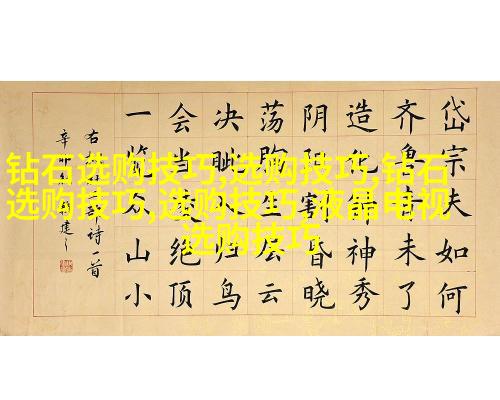 钻石选购技巧,选购技巧,钻石
选购技巧,选购技巧,液晶电视
选购技巧
岱宗夫如何
齐鲁青未了
造化钟神秀
阴阳割昏晓
荡胸生层云
决眦入归鸟
会当凌绝顶
一览众山小
右诗一首
辛卯建